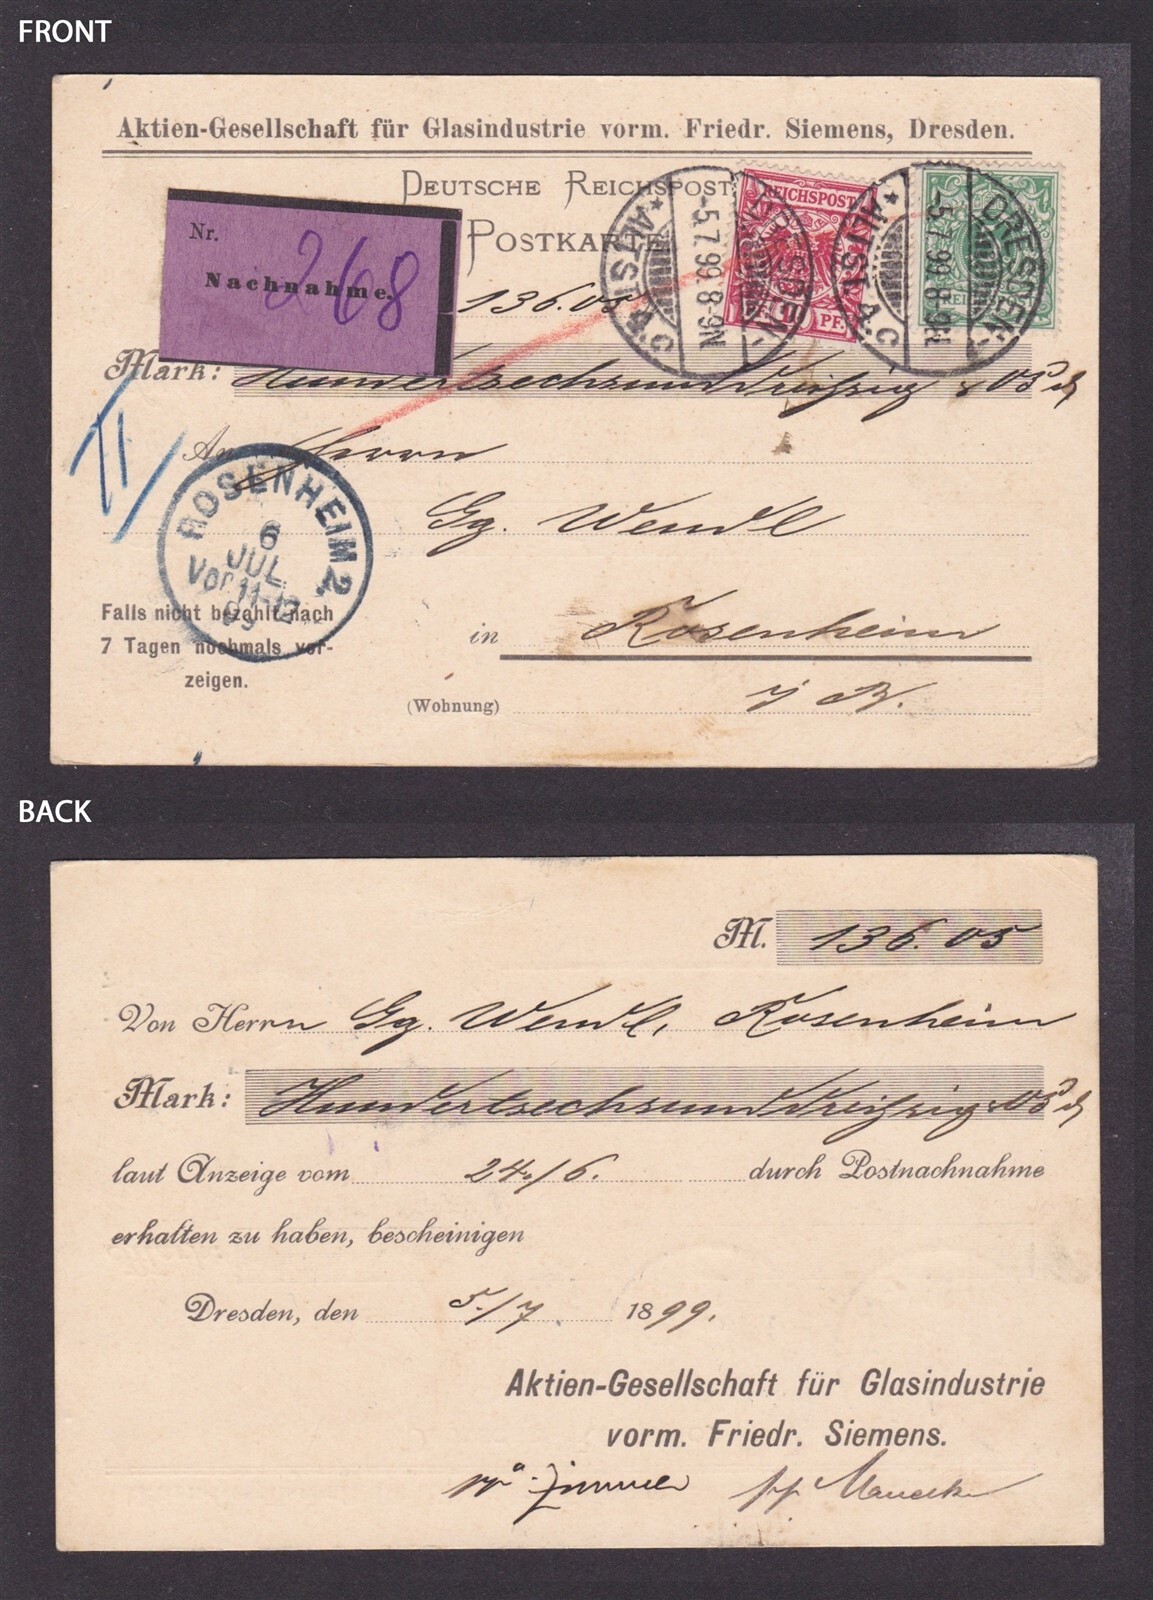 FRONT
Aktien-Gesellschaft für Glasindustrie vorm. Friedr. Siemens, Dresden.
DEUTSCHE REICHSPOST
POSTKARTE
Nr. 268
Nachnahme.
136.05
REICHSPOST
10 PF.
DRESDEN-
* ALTST. 4. C
-5.7.99.8-9N
DRESDEN-
* ALTST. 4. C
-5.7.99.8-9N
Mark: Hundertsechsunddreißig & 05
An Herrn
Gg. Wendl
ROSENHEIM 2.
6
JUL.
Vor 11-12
99
Falls nicht bezahlt nach
7 Tagen nochmals vor-
zeigen.
in Rosenheim
(Wohnung) i/ B.
BACK
M. 136.05
Von Herrn Gg. Wendl, Rosenheim
Mark: Hundertsechsunddreißig & 05
laut Anzeige vom 24./6. durch Postnachnahme
erhalten zu haben, bescheinigen
Dresden, den 5./7. 1899.
Aktien-Gesellschaft für Glasindustrie
vorm. Friedr. Siemens.